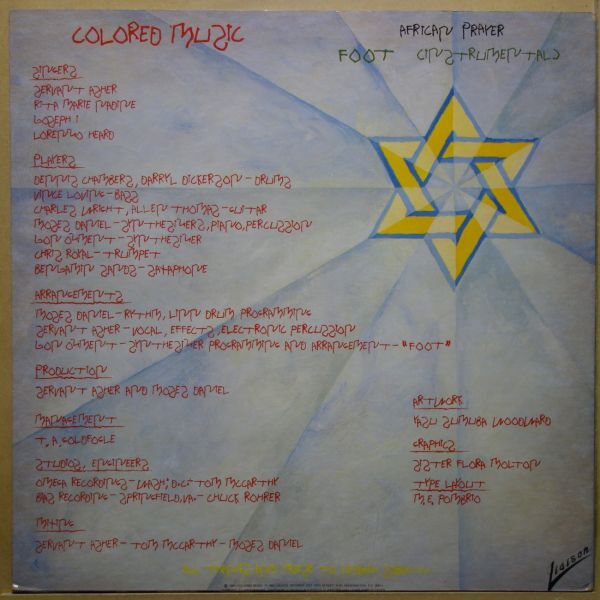 COLORED MUSIC
AFRICAN PRAYER
FOOT (INSTRUMENTAL)
SINGERS
SERVANT ASHER
RITA MARIE NADINE
JOSEPH I
LORENZO HEARD
PLAYERS
DENNIS CHAMBERS, DARRYL DICKERSON - DRUMS
VINCE LOVING - BASS
CHARLES WRIGHT, ALLEN THOMAS - GUITAR
MOSES DANIEL - SYNTHESIZERS, PIANO, PERCUSSION
JON OZMENT - SYNTHESIZER
CHRIS ROYAL - TRUMPET
BENJAMIN SANDS - SAXAPHONE
ARRANGEMENTS
MOSES DANIEL - RYTHM, LINN DRUM PROGRAMMING
SERVANT ASHER - VOCAL, EFFECTS, ELECTRONIC PERCUSSION
JON OZMENT - SYNTHESIZER PROGRAMMING AND ARRANGEMENT - "FOOT"
PRODUCTION
SERVANT ASHER AND MOSES DANIEL
MANAGEMENT
T. A. GOLDFOGLE
STUDIOS, ENGINEERS
OMEGA RECORDINGS - WASH; D.C; TOM MCCARTHY
BIAS RECORDING - SPRINGFIELD, VA. - CHUCK ROHRER
MIXING
SERVANT ASHER - TOM MCCARTHY - MOSES DANIEL
ARTWORK
SUMUBA WOODWARD
GRAPHICS
SISTER FLORA MOLTON
TYPE LAYOUT
M.E. POMBRIO
Liaison